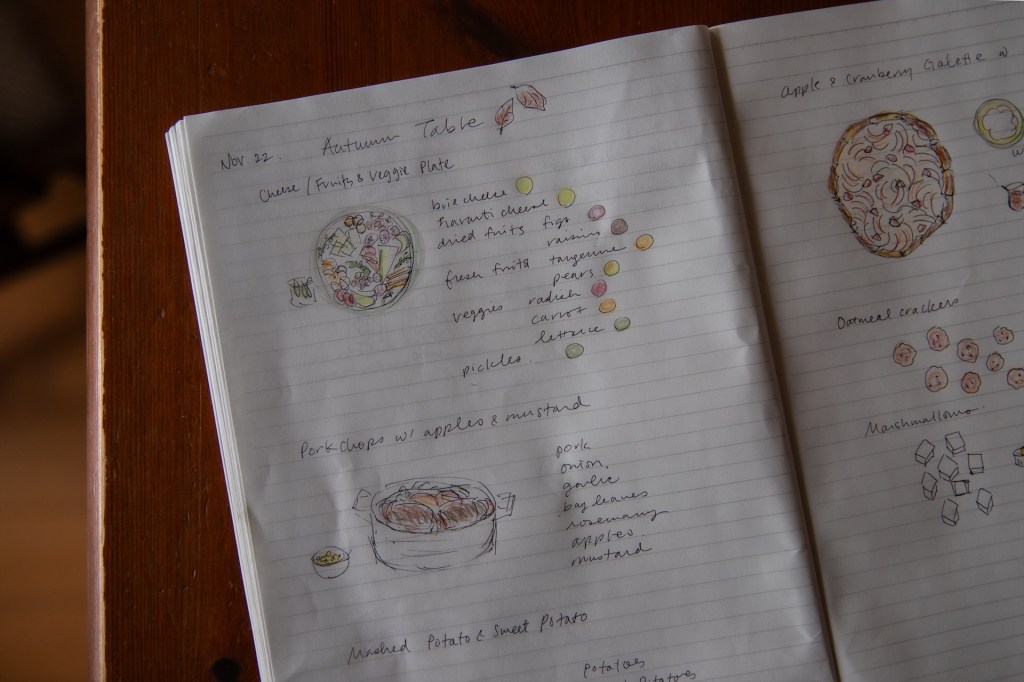 Nov. 22. Autumn Table
Cheese / Fruits & Veggie Plate
brie cheese
havarti cheese
dried fruits figs
raisins
fresh fruits tangerine
pears
veggies radish
carrot
lettuce
pickles.
Porkchops w/ apples & mustard
pork
onion.
garlic
bay leaves
rosemary
apples.
mustard
Mashed Potato & Sweet Potato
potatoes
Potatoes
Apple & Cranberry Galette w
Oatmeal crackers
Marshmallows